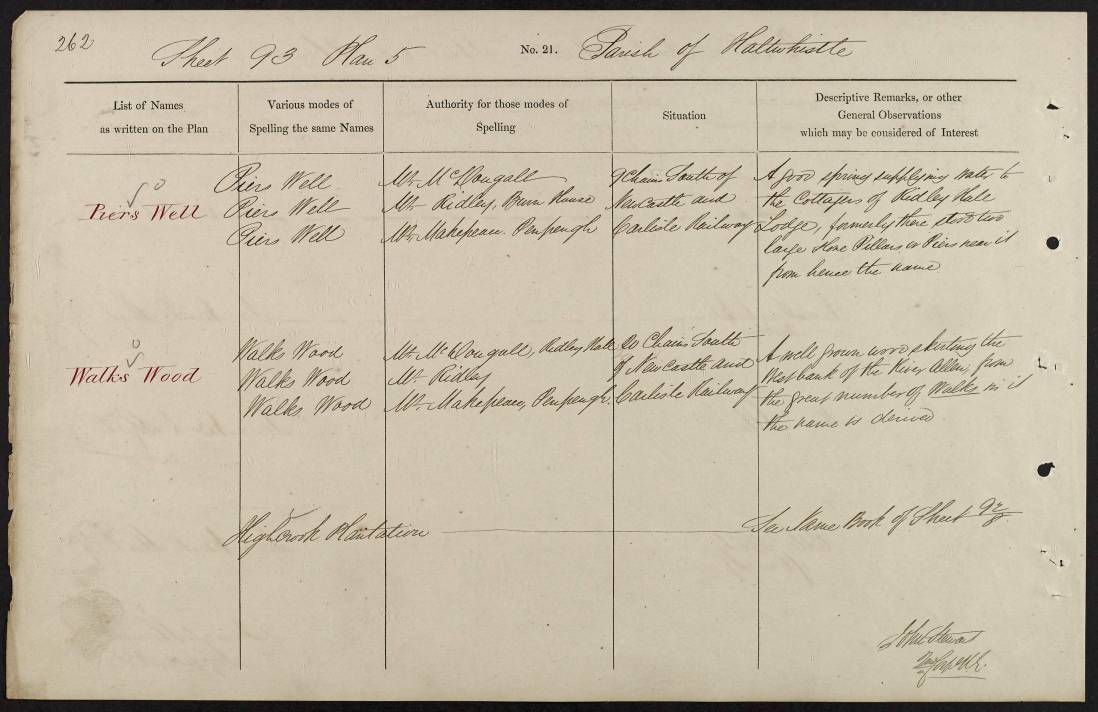 262
Sheet 93 Plan 5 No. 21. Parish of Haltwhistle
List of Names
as written on the Plan
Various modes of
Spelling the same Names
Authority for those modes of
Spelling
Situation
Descriptive Remarks, or other
General Observations
which may be considered of Interest
Piers Well
Piers Well
Piers Well
Piers Well
Mr. McDougall
Mr. Ridley, Burn House
Mr. Makepeace. Penpeugh
9 Chains South of
Newcastle and
Carlisle Railway
A good spring supplying water to
the Cottages of Ridley Hall
Lodge, formerly there stood two
large Stone Pillars or Piers near it
from hence the name
Walks Wood
Walks Wood
Walks Wood
Walks Wood
Mr. McDougall, Ridley Hall
Mr. Ridley
Mr. Makepeace, Penpeugh.
20 Chains South
of Newcastle and
Carlisle Railway
A well grown wood skirting the
West bank of the River Allen, from
the great number of Walks in it
the name is derived
High Crook Plantation
See Name Book of Sheet
John Stewart